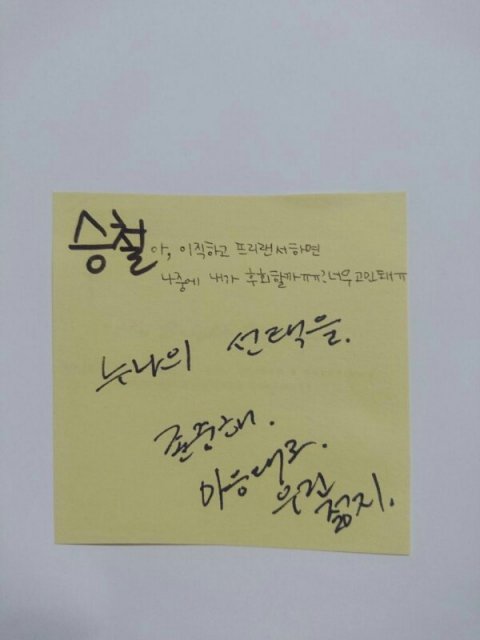 승철아, 이직하고 프리랜서하면
나중에 내가 후회할까ㅠㅠ? 너무 고민돼ㅠ
누나의 선택을.
존중해.
마음대로.
우린
젊지.